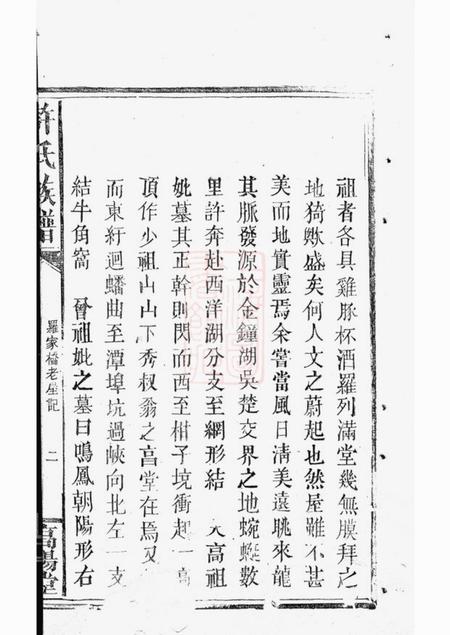 祖者各具雞豚杯酒羅列滿堂幾無膜拜之
地猗歟盛矣何人文之蔚起也然屋雖不甚
美而地實靈焉余嘗當風日清美遠眺來龍
其脈發源於金鐘湖吳楚交界之地蜿蜒數
里許奔赴西洋湖分支至網形結 天高祖
妣墓其正幹則閃而西至柑子坑衝起一高
頂作少祖山山下秀叔翁之高堂在焉又
而東紆迴蟠曲至潭埠坑過峽向北左一支
結牛角窩 晉祖妣之墓曰鳴鳳朝陽形右
許氏族譜
羅家橋老屋記
二
高陽堂